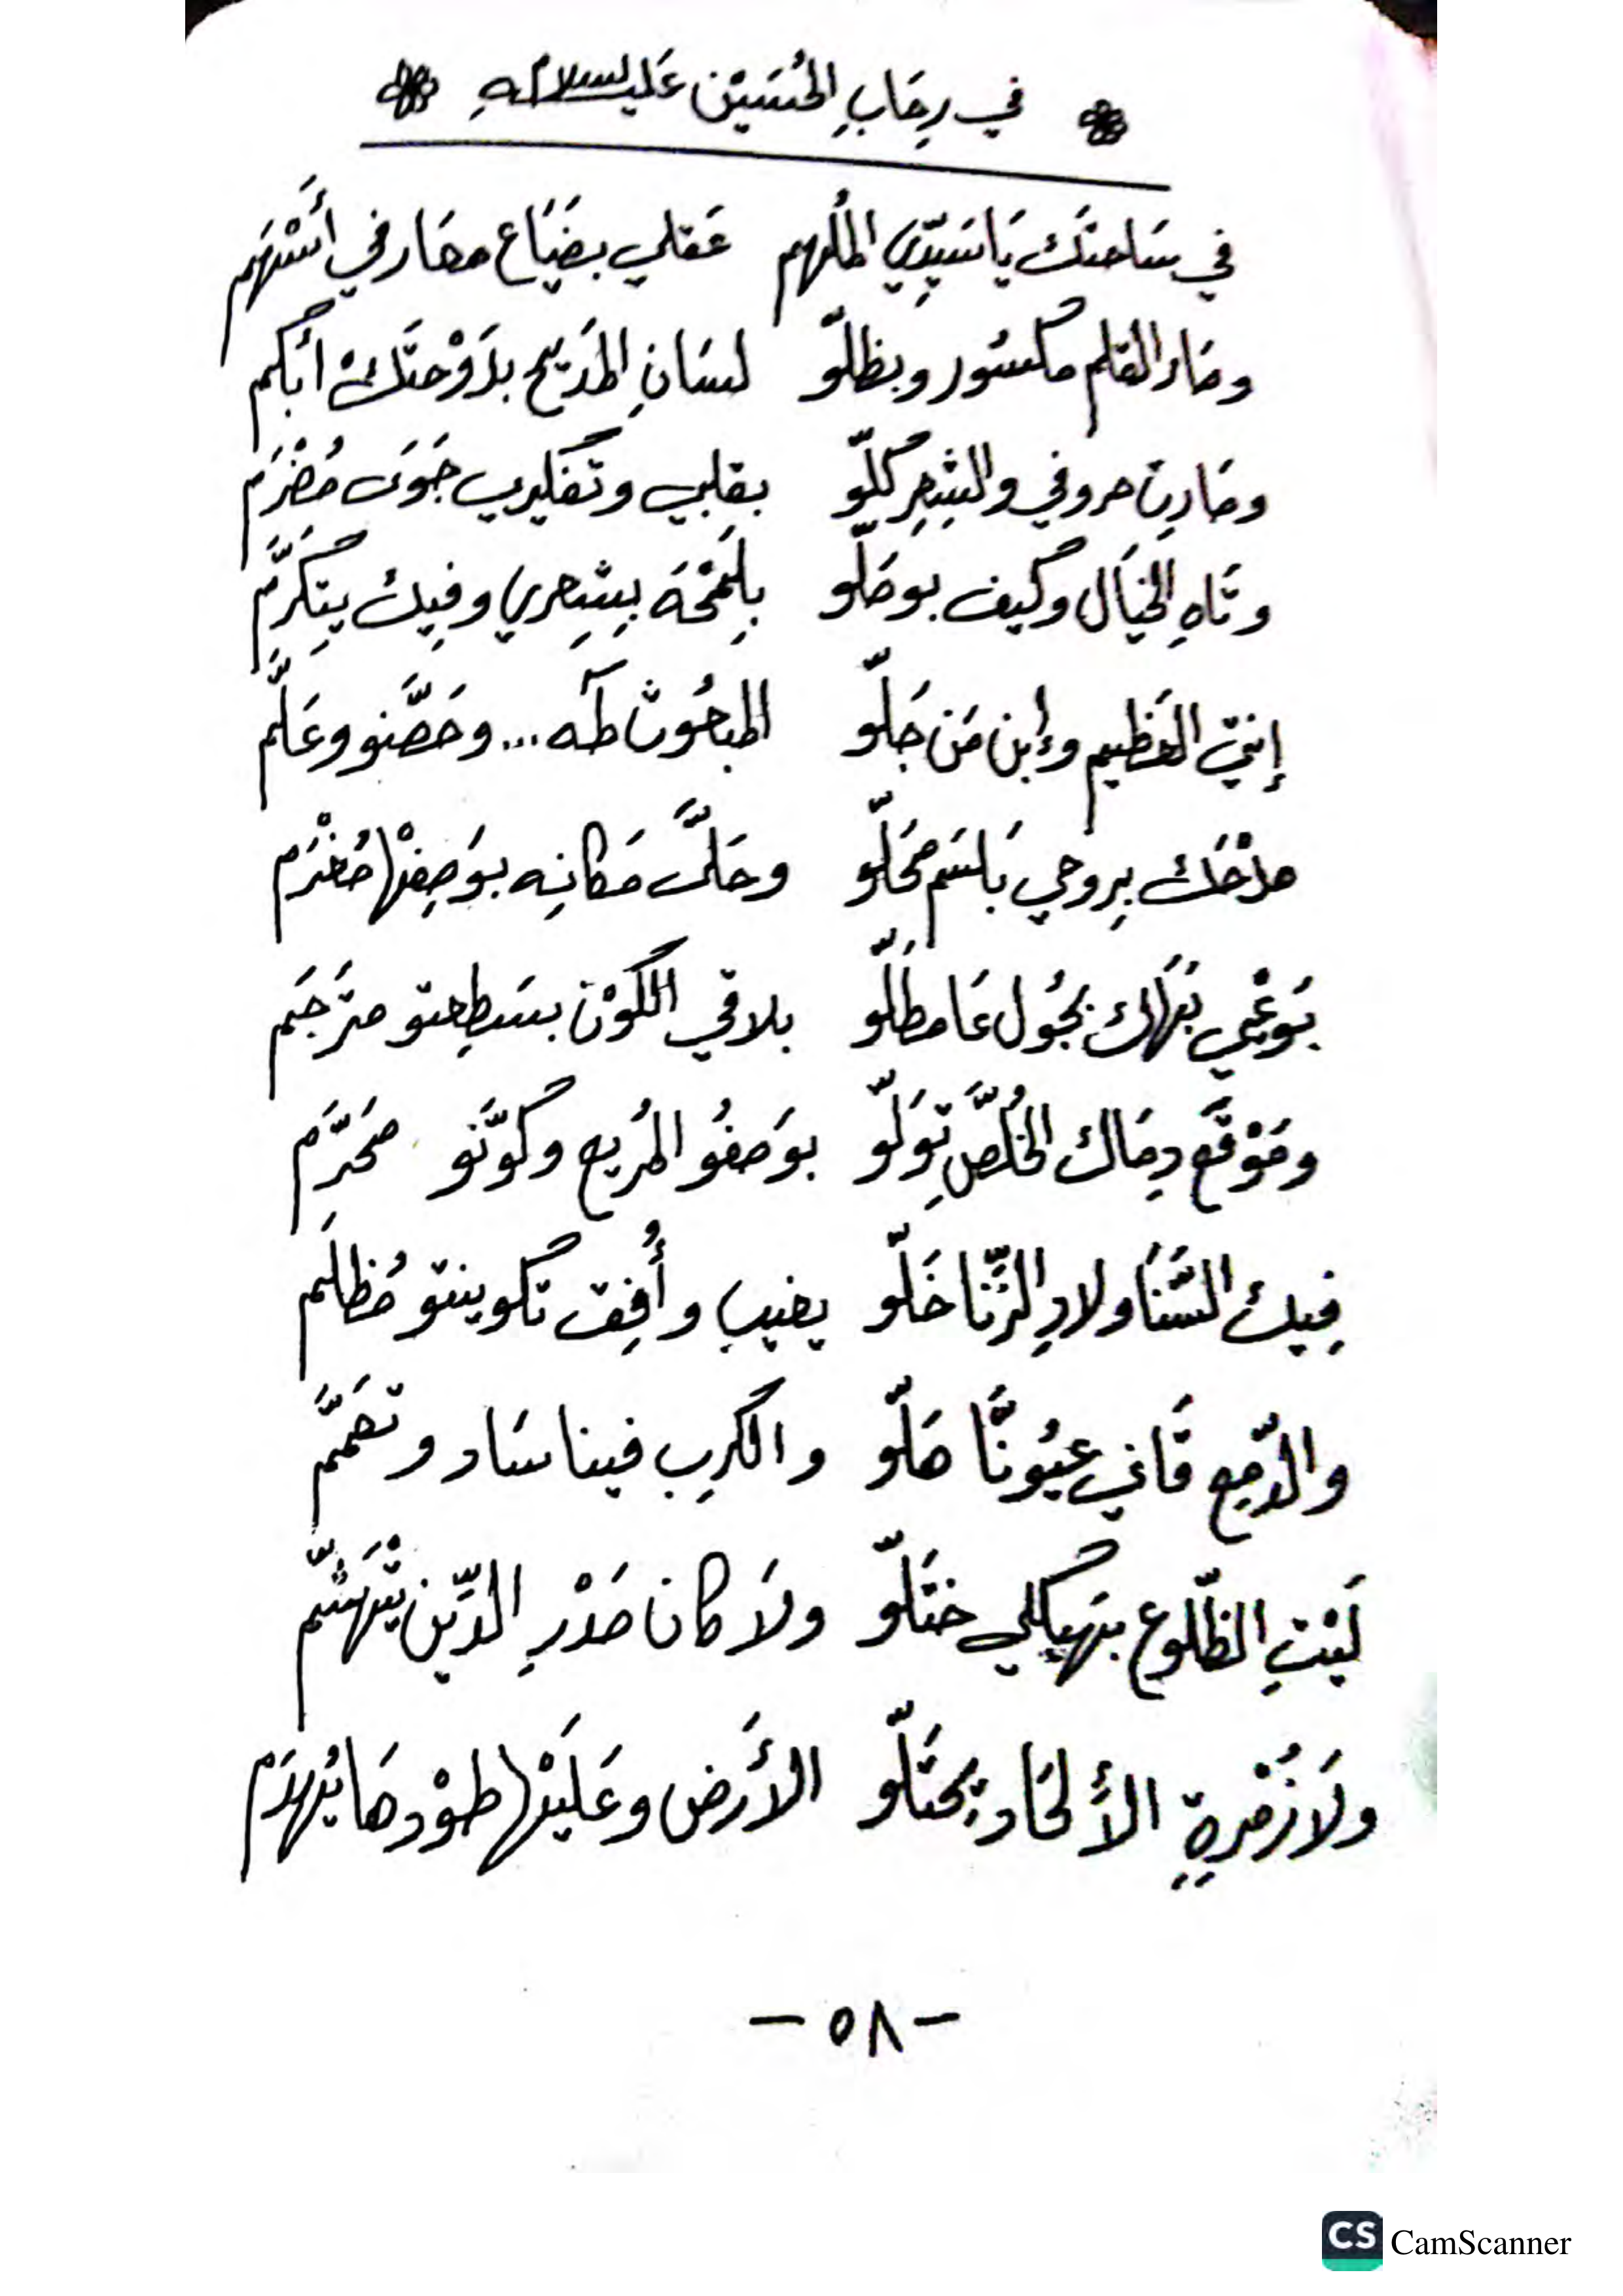 في رِحَابِ الحُسَيْن عَليه السلام
في سَاحتَك يَا سَيّدِي المُلهم عَقلي بضَيَاع محَار في أَسْهَم
وصَار القلم مكسُور وبظلّو لسَانِ المَديح بدَوْحتَكْ أبكم
وصَارِت حروفي والشِعِر كلّو بقلبي وتفكيري جَوَى مُضْرَم
وتَاهِ الخيَال وكيف بوصَلّو بِلَمْحَة بِشِعري وفِيك يِتكَرَّم
إنتَ العَظيم وإبن مَن جَلّو المبعُوث طه... وخَصَّنو وعَلَّم
مدْحَك بِروحي بَلسَم مْحَلّو وحَلَّى مَكانِه بوَصِفْها مُغْرَم
بَوعْي نَهْك بجُول عَا مطَلّو بلاقي الكَوْن بسَطِعتو مترجَم
ومَوْقَع دِمَاك الخُلَّص تِوَلّو بوَصفُو المُريع وكوَّنو محَرَّم
فِيك السَّنَا ولادِ الزِّنا خَلّو يغيب وأُفِق تكوينتو مُظلَم
والدّمِع قَاني عيُونَّا هَلّو والكرِب فينا سَاد وتعَمَّم
لَيْتِ الضّلوع بهَيكلي ختَلّو ولَا كان صَدْرِ الدِّين يتْهَشّم
ولَا زُمْرةِ الأَلحَاد يحتَلّو الأَرَض وعَلَيْها طَوْدها يُهدَم
- ٥٨ -
CS CamScanner